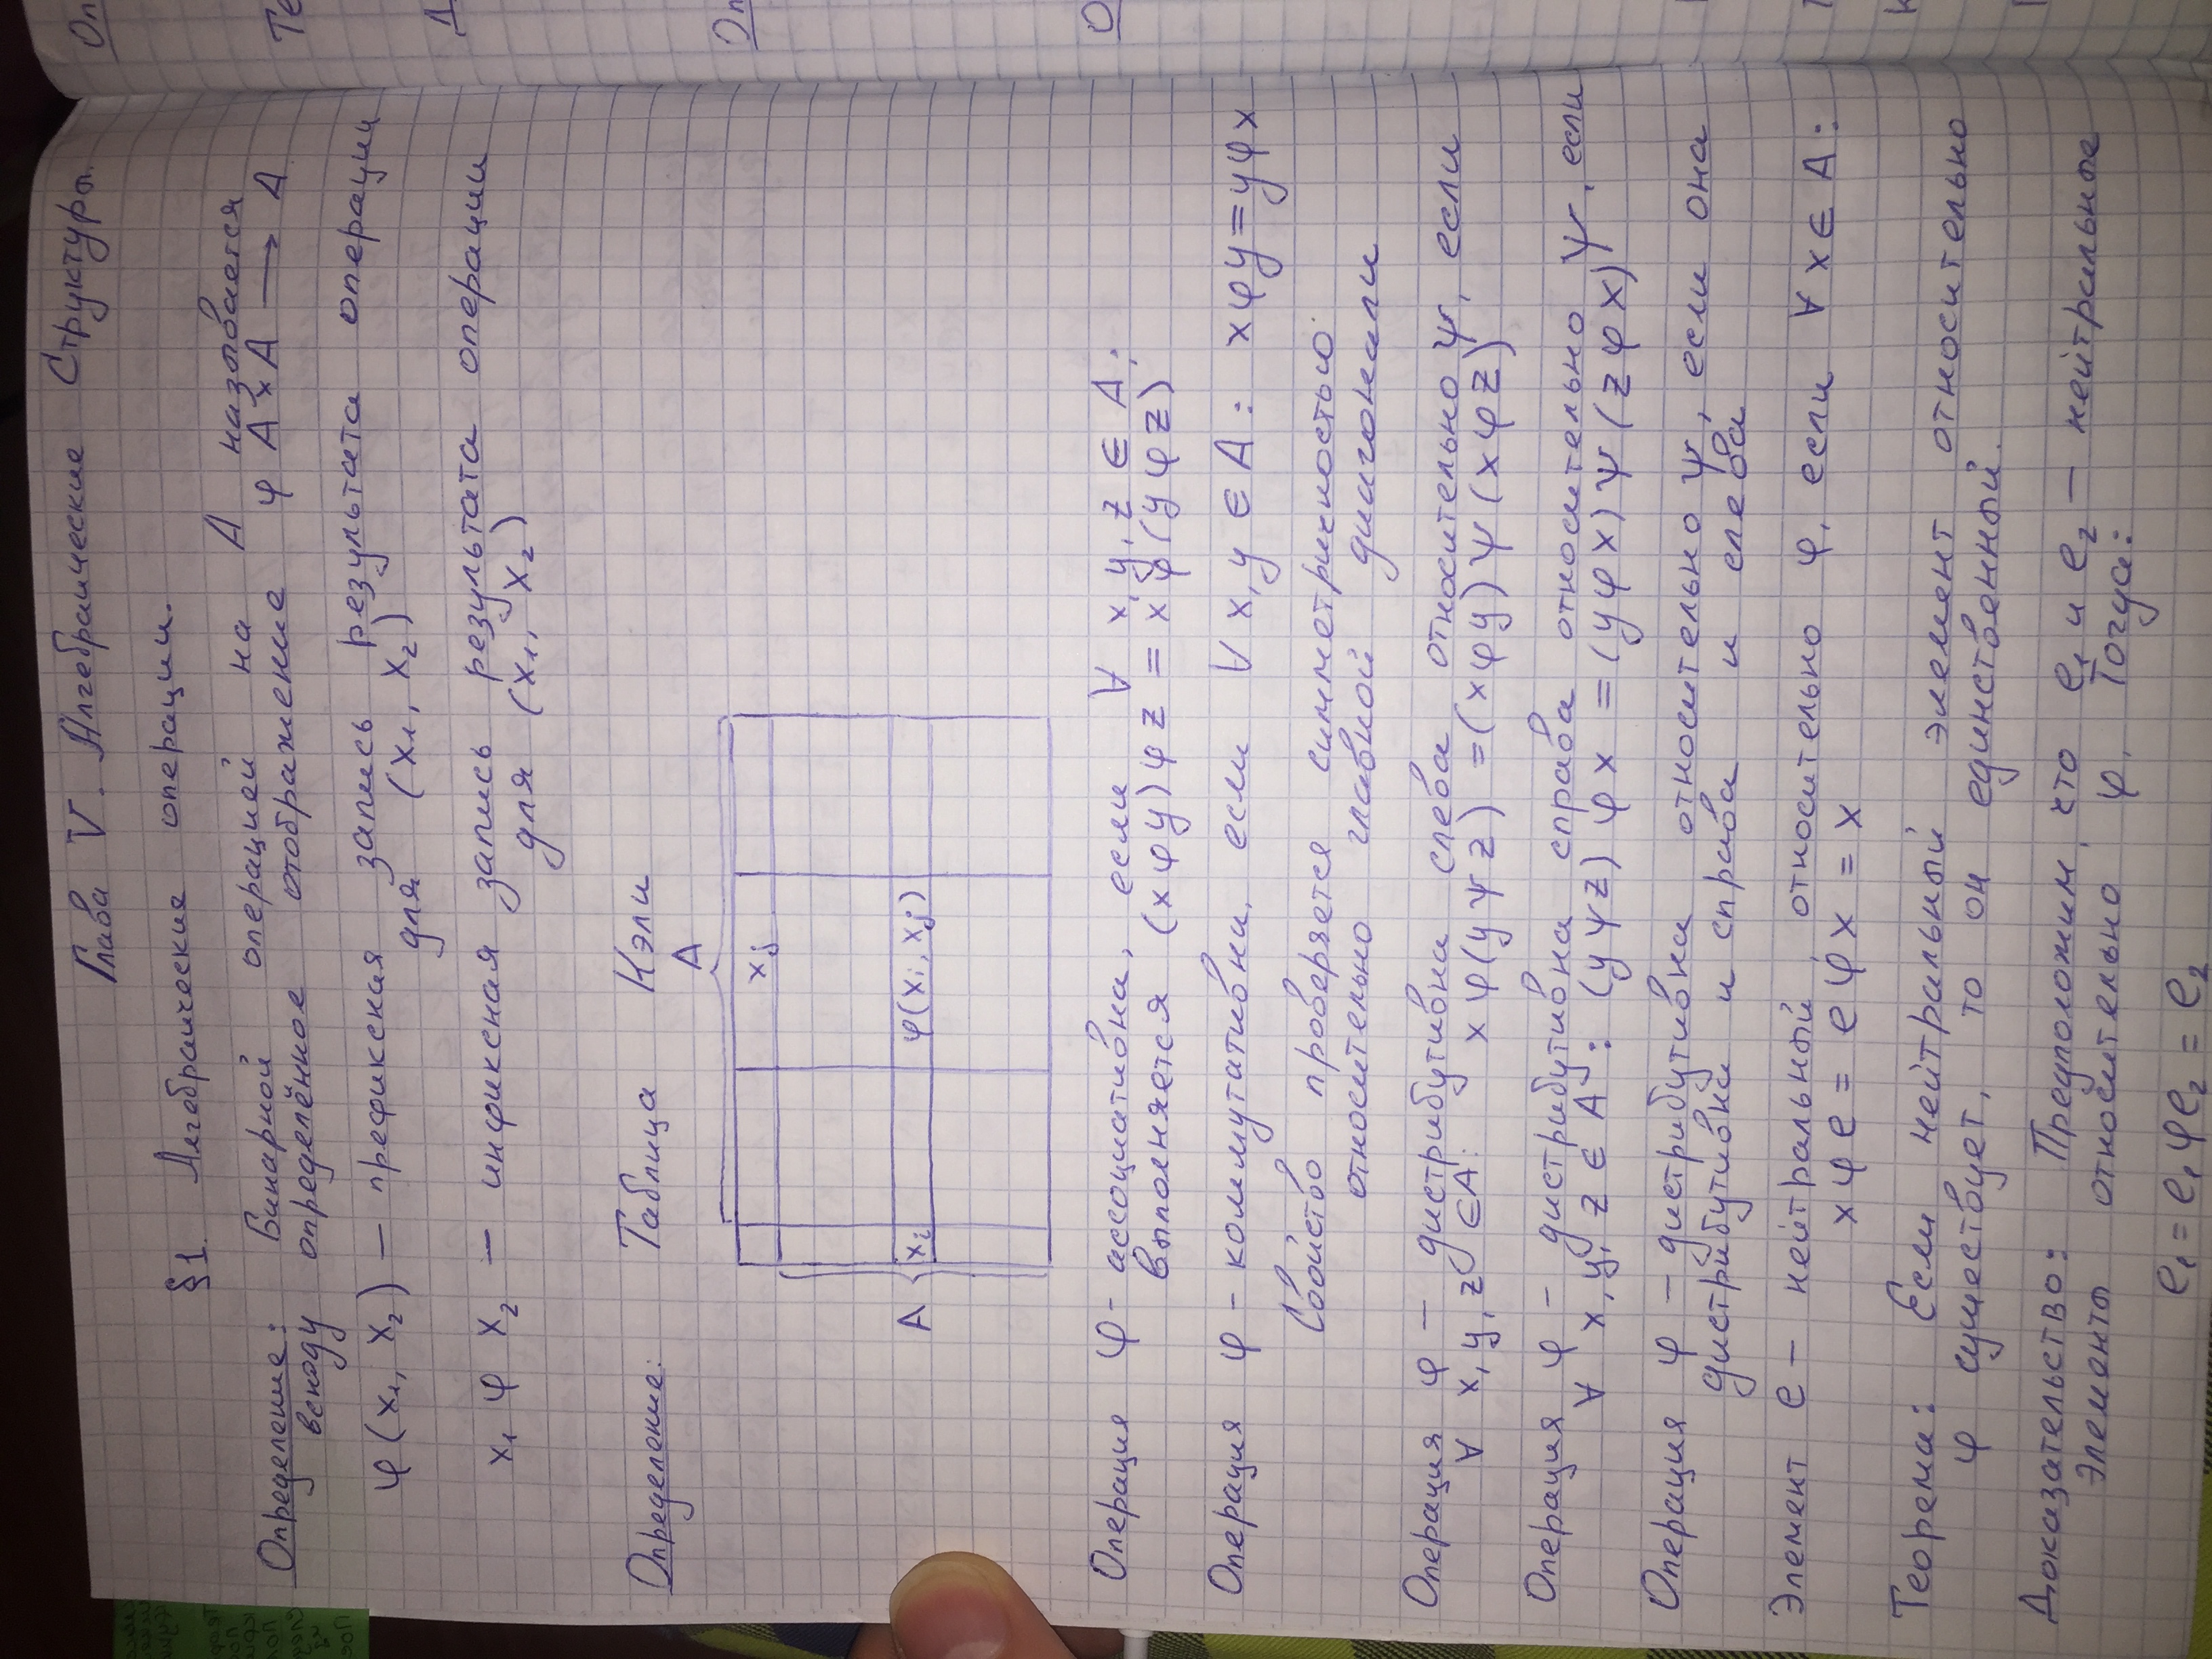 Глава V. Алгебраические Структуры.
§1. Алгебраические операции.
Определение: Бинарной операцией на A называется
всюду определённое отображение φ A × A → A
φ(x₁, x₂) — префиксная запись результата операции
для (x₁, x₂)
x₁ φ x₂ — инфиксная запись результата операции
для (x₁, x₂)
Определение: Таблица Кэли
A
xⱼ
A xᵢ φ(xᵢ, xⱼ)
Операция φ - ассоциативна, если ∀ x, y, z ∈ A:
выполняется (x φ y) φ z = x φ (y φ z)
Операция φ - коммутативна, если ∀ x, y ∈ A: x φ y = y φ x
Свойство проверяется симметричностью
относительно главной диагонали
Операция φ — дистрибутивна слева относительно ψ, если
∀ x, y, z ∈ A: x φ (y ψ z) = (x φ y) ψ (x φ z)
Операция φ — дистрибутивна справа относительно ψ, если
∀ x, y, z ∈ A: (y ψ z) φ x = (y φ x) ψ (z φ x)
Операция φ — дистрибутивна относительно ψ, если она
дистрибутивна и справа и слева
Элемент e — нейтральный, относительно φ, если ∀ x ∈ A:
x φ e = e φ x = x
Теорема: Если нейтральный элемент относительно
φ существует, то он единственный.
Доказательство: Предположим, что e₁ и e₂ — нейтральные
элементы относительно φ. Тогда:
e₁ = e₁ φ e₂ = e₂